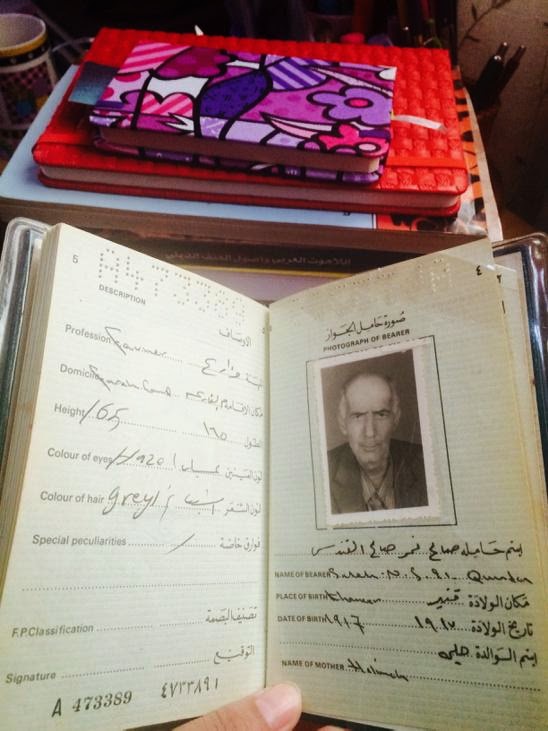 اللاهوت العربي وأصول العنف الديني
5
DESCRIPTION
الأوصاف
Profession Farmer المهنة مزارع
Domicile مكان الإقامة
Height 165 الطول ١٦٥
Colour of eyes Hazel لون العينين عسلي
Colour of hair grey لون الشعر أشيب
Special peculiarities / فوارق خاصة
F.P.Classification تصنيف البصمة
Signature التوقيع
A 473389 ٤٧٣٣٨٩ ا
٤
صورة حامل الجواز
PHOTOGRAPH OF BEARER
اسم حامله صالح نمر صالح
NAME OF BEARER Saleh N. S.
PLACE OF BIRTH مكان الولادة
DATE OF BIRTH 1917 تاريخ الولادة ١٩١٧
اسم الوالدة حليمة
NAME OF MOTHER Halimeh